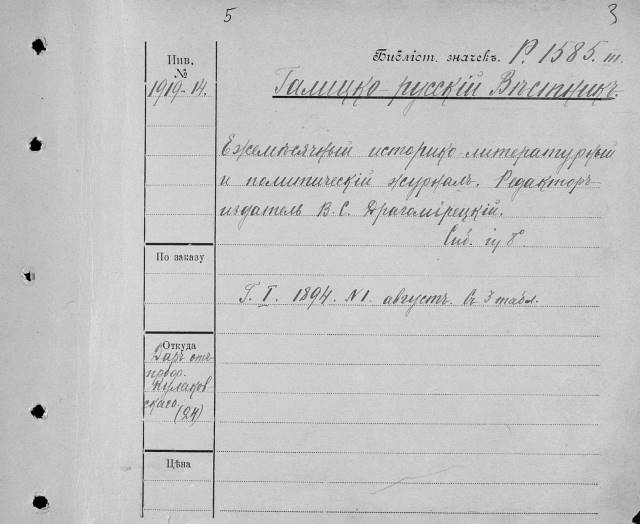 5
3
Библіот. значекъ. P. 1585. m.
Инв.
№
1919-14.
Галицко-русскій Вѣстникъ.
Ежемѣсячный историко-литературный
и политическій журналъ. Редакторъ-
издатель В. С. Драгомірецкій.
Спб.
По заказу
Г. I. 1894. N1. августъ. Съ 3 табл.
Откуда
Даръ отъ
проф.
Кулаков
скаго.
(24)
Цѣна